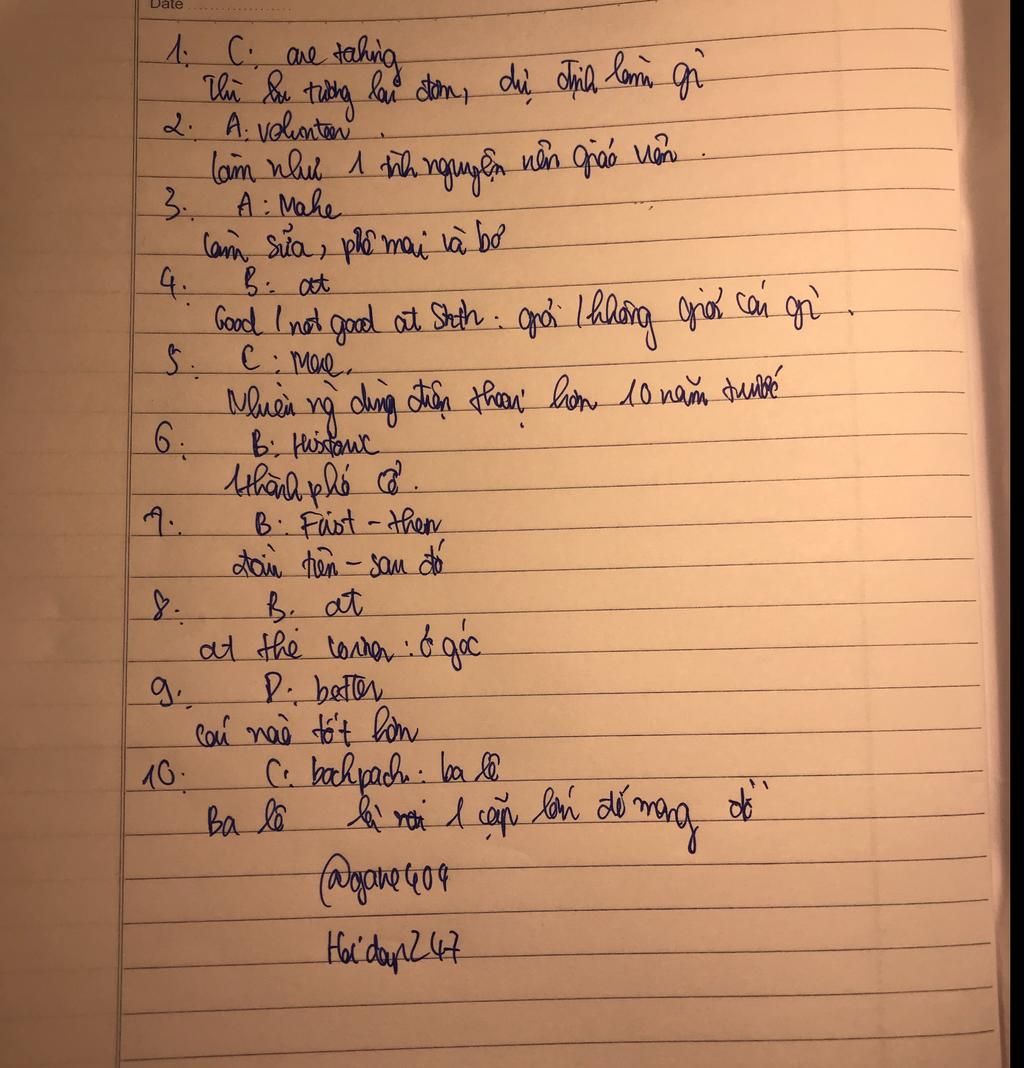 Date
1. C: are taking
Thì tương lai đơn, dự định làm gì
2. A: volunteer.
làm như 1 tình nguyện viên giáo viên.
3. A: Make
làm sữa, phô mai và bơ
4. B: at
Good / not good at Smth: giỏi / không giỏi cái gì.
5. C: More.
Nhiều ng dùng điện thoại hơn 10 năm trước
6. B: Historic
thành phố cổ.
7. B: First - then
đầu tiên - sau đó
8. B. at
at the corner: ở góc
9. D. better
cái nào tốt hơn
10. C: backpack: ba lô
Ba lô là 1 cặp lớn để mang đồ
@gane404
Hoidap247